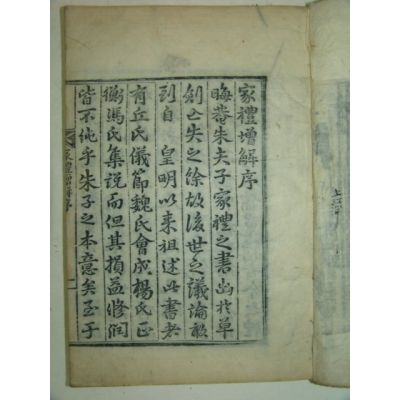 家禮增解序
晦菴朱夫子家禮之書出於草
創亡失之餘故後世之議論
到自 皇明以來祖述此書者
有丘氏儀節魏氏會成楊氏正
衡馮氏集說而但其損益修潤
皆不純乎朱子之本意矣至于
家禮增解序